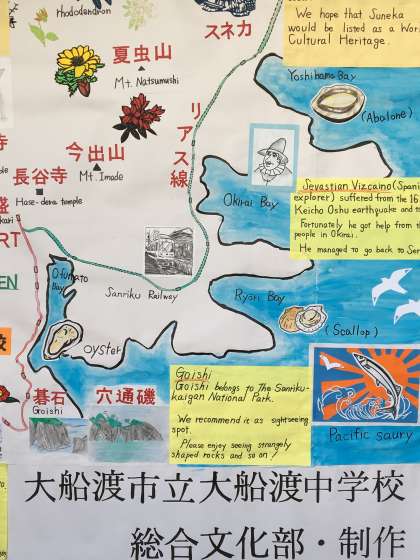 rhododendron
スネカ
We hope that Suneka
would be listed as a Wor
Cultural Heritage.
夏虫山
Mt. Natsumushi
Yoshihama Bay
(Abalone)
リアス線
今出山
Mt. Imade
寺
長谷寺
Hase-dera temple
盛
Okirai Bay
Sevastian Vizcaino (Spani
explorer) suffered from the 16
Keicho Oshu earthquake and t
Fortunately he got help from t
people in Okirai.
He managed to go back to Se
RT
EN
校
Ofunato
Bay
Sanriku Railway
Ryori Bay
(Scallop)
oyster
Goishi
Goishi belongs to The Sanriku-
kaigan National Park.
We recommend it as sightseeing
spot.
Please enjoy seeing strangely
shaped rocks and so on!
Pacific saury
碁石
Goishi
穴通磯
大船渡市立大船渡中学校
総合文化部・制作